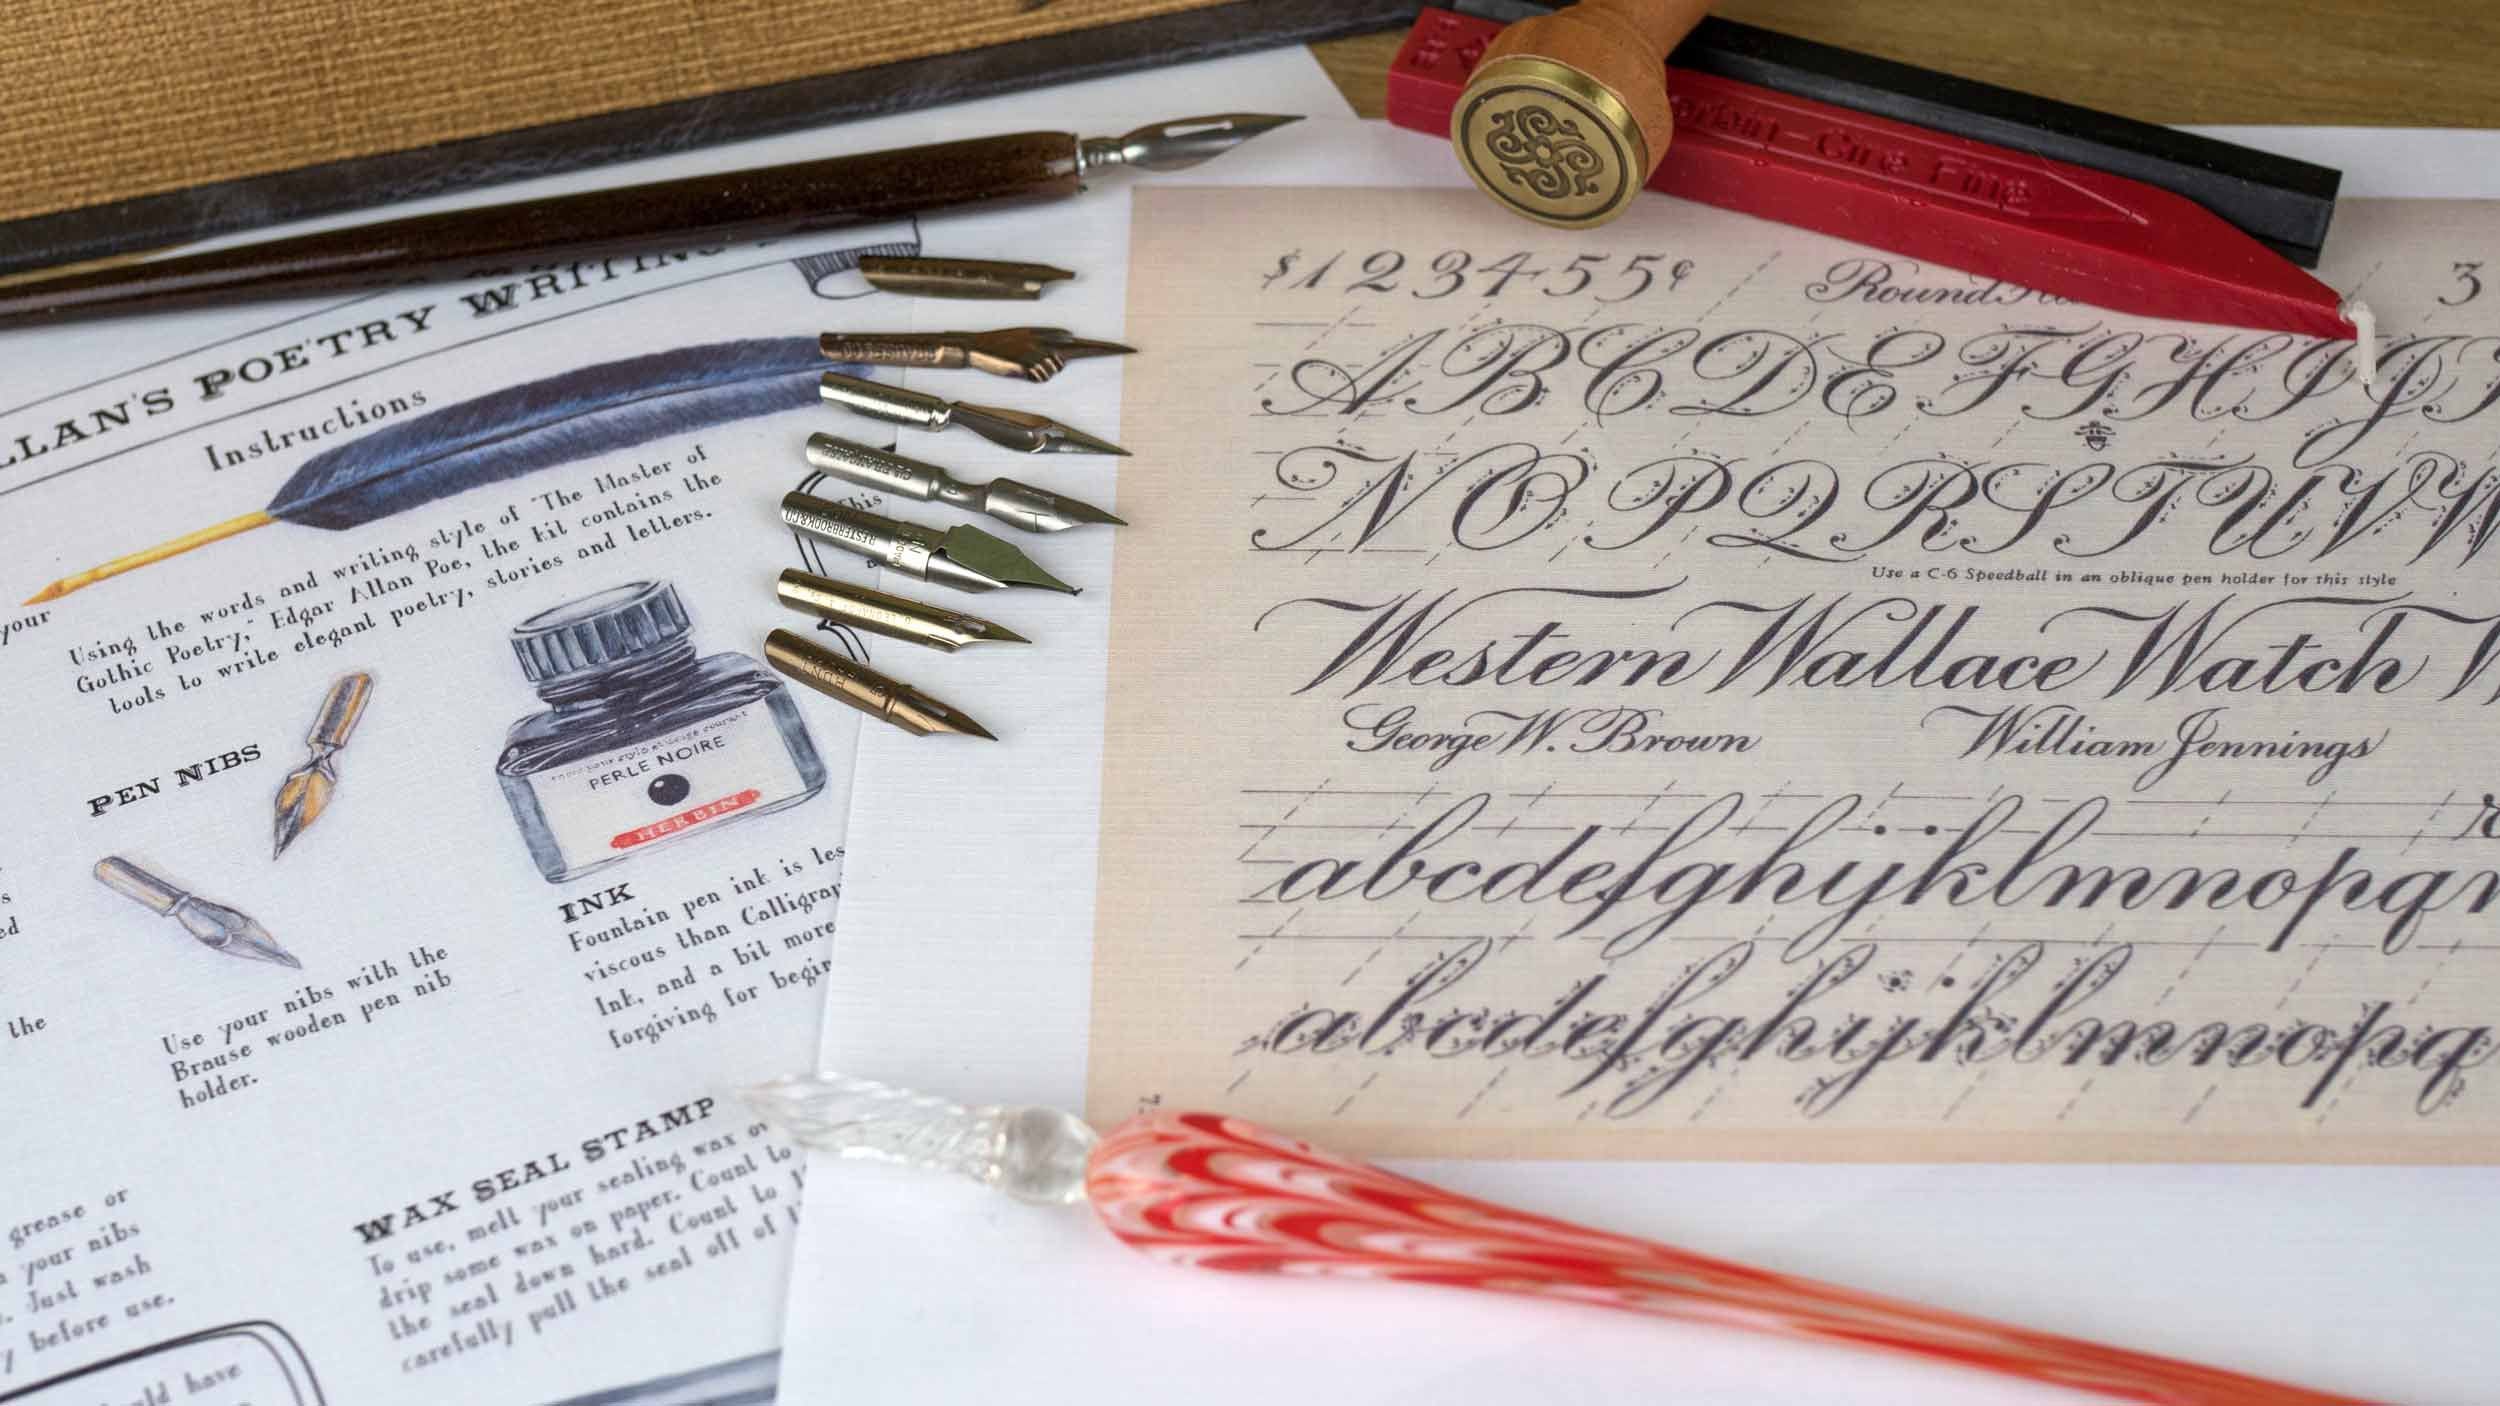 LLAN'S POETRY WRITING
Instructions
your
Using the words and writing style of "The Master of
Gothic Poetry," Edgar Allan Poe, the kit contains the
tools to write elegant poetry, stories and letters.
This
PEN NIBS
Use your nibs with the
Brause wooden pen nib
holder.
PERLE NOIRE
HERBIN
INK
Fountain pen ink is les
viscous than Calligrap
Ink, and a bit more
forgiving for begin
the
WAX SEAL STAMP
To use, melt your sealing wax or
drip some wax on paper. Count to
the seal down hard. Count to 1
carefully pull the seal off of t
grease or
your nibs
Just wash
before use.
uld have
BRAUSE & CO
R.ESTERBROOK&CO
HUNT
Cire Fine
$1234556¢
Round
3
ABCDEFGHIJ
NOPQRSTUVW
Use a C-6 Speedball in an oblique pen holder for this style
Western Wallace Watch W
George W. Brown William Jennings
abcdefghijklmnopqr
abcdefghijklmnopq